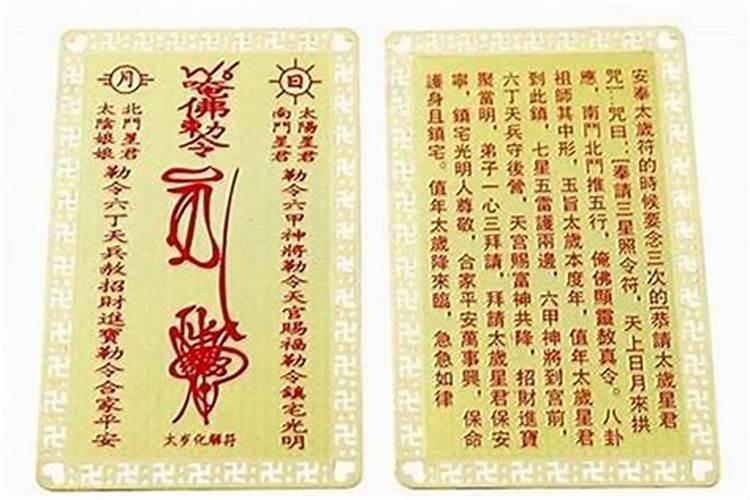 日
太陽星君
南鬥星君
勒令六甲神將勒令天官賜福勒令鎮宅光明
唵佛勅令
月
北鬥星君
太陰娘娘
勒令六丁天兵赦招財進寶勒令合家平安
太岁化解符
安奉太歲符的時候要念三次的[恭請太歲星君
咒]...咒曰:[奉請三星照令符,天上日月來拱
應,南鬥北鬥推五行,俺佛顯靈敖真令。八卦
祖師其中形,玉旨太歲本度年,值年太歲星君
到此鎮,七星五雷護兩邊,六甲神將到宮前,
六丁天兵守後營,天宮賜富神共降,招財進寶
聚當明,弟子一心三拜請,拜請太歲星君保安
寧,鎮宅光明人尊敬,合家平安萬事興,保命
護身且鎮宅。值年太歲降來臨,急急如律